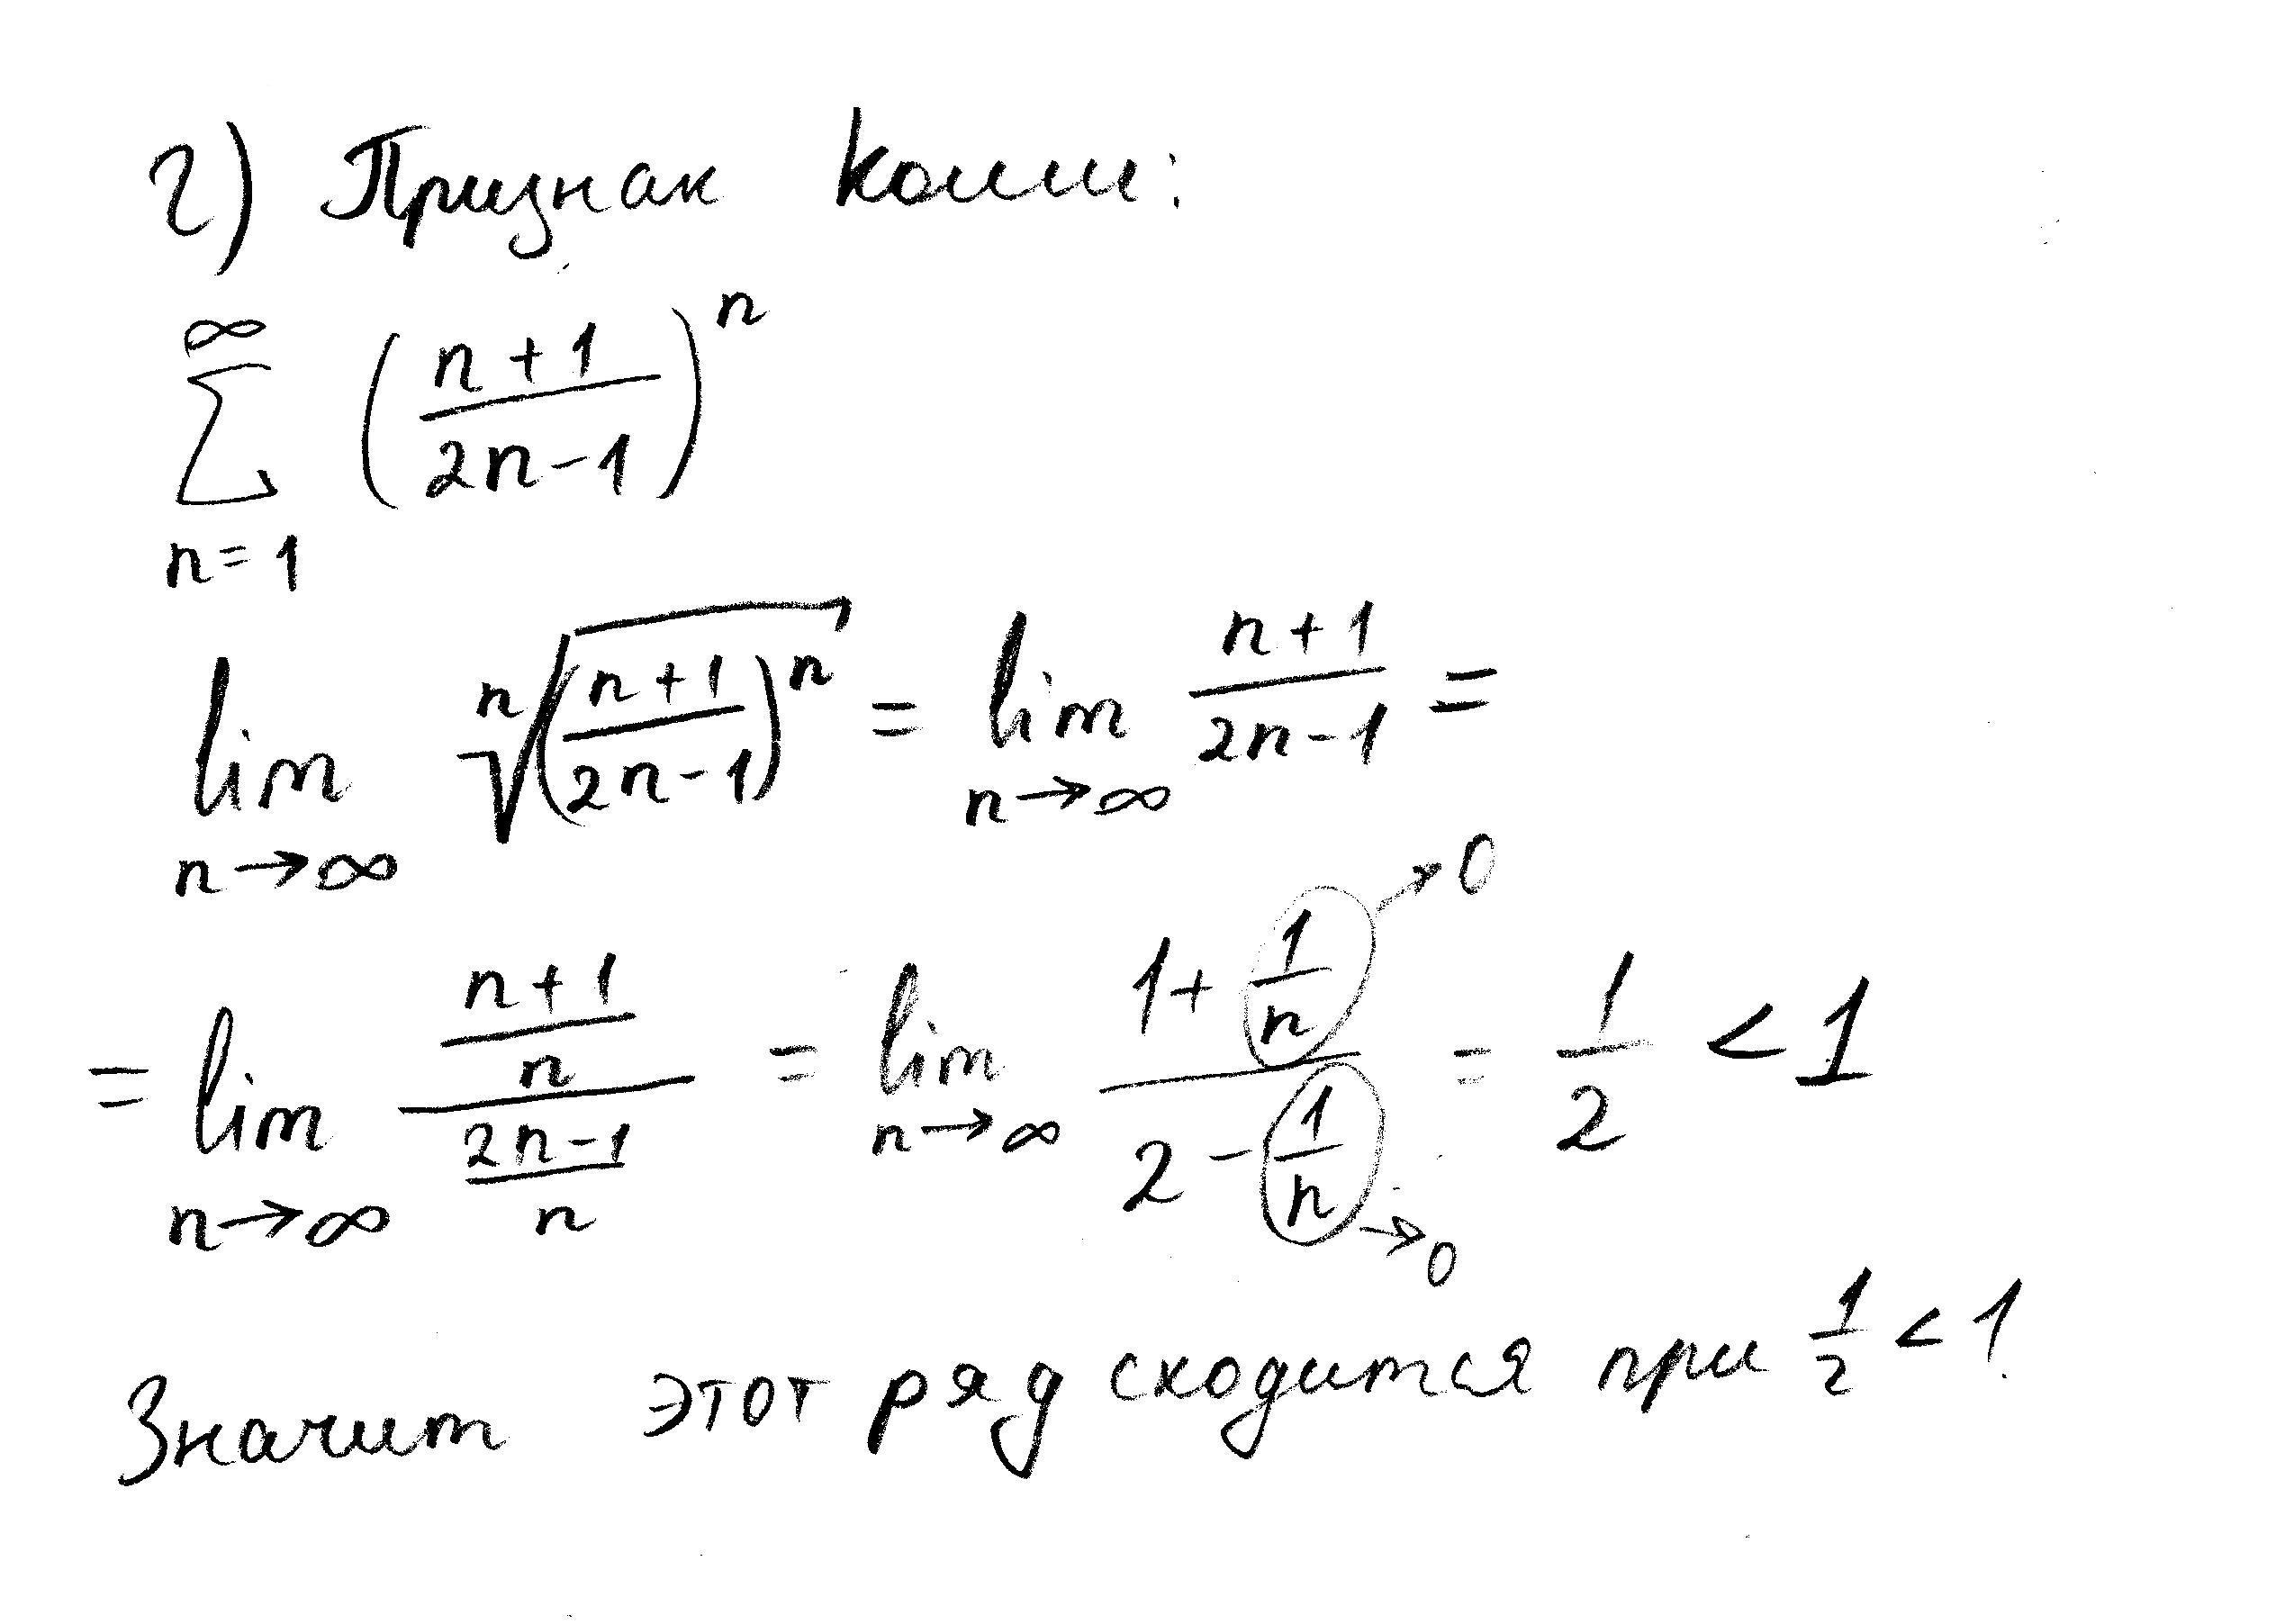 г) Признак Коши:
$\sum_{n=1}^{\infty} \left( \frac{n+1}{2n-1} \right)^n$
$\lim_{n \to \infty} \sqrt[n]{\left( \frac{n+1}{2n-1} \right)^n} = \lim_{n \to \infty} \frac{n+1}{2n-1} =$
$= \lim_{n \to \infty} \frac{\frac{n+1}{n}}{\frac{2n-1}{n}} = \lim_{n \to \infty} \frac{1 + \frac{1}{n} \to 0}{2 - \frac{1}{n} \to 0} = \frac{1}{2} < 1$
Значит этот ряд сходится при $\frac{1}{2} < 1.$